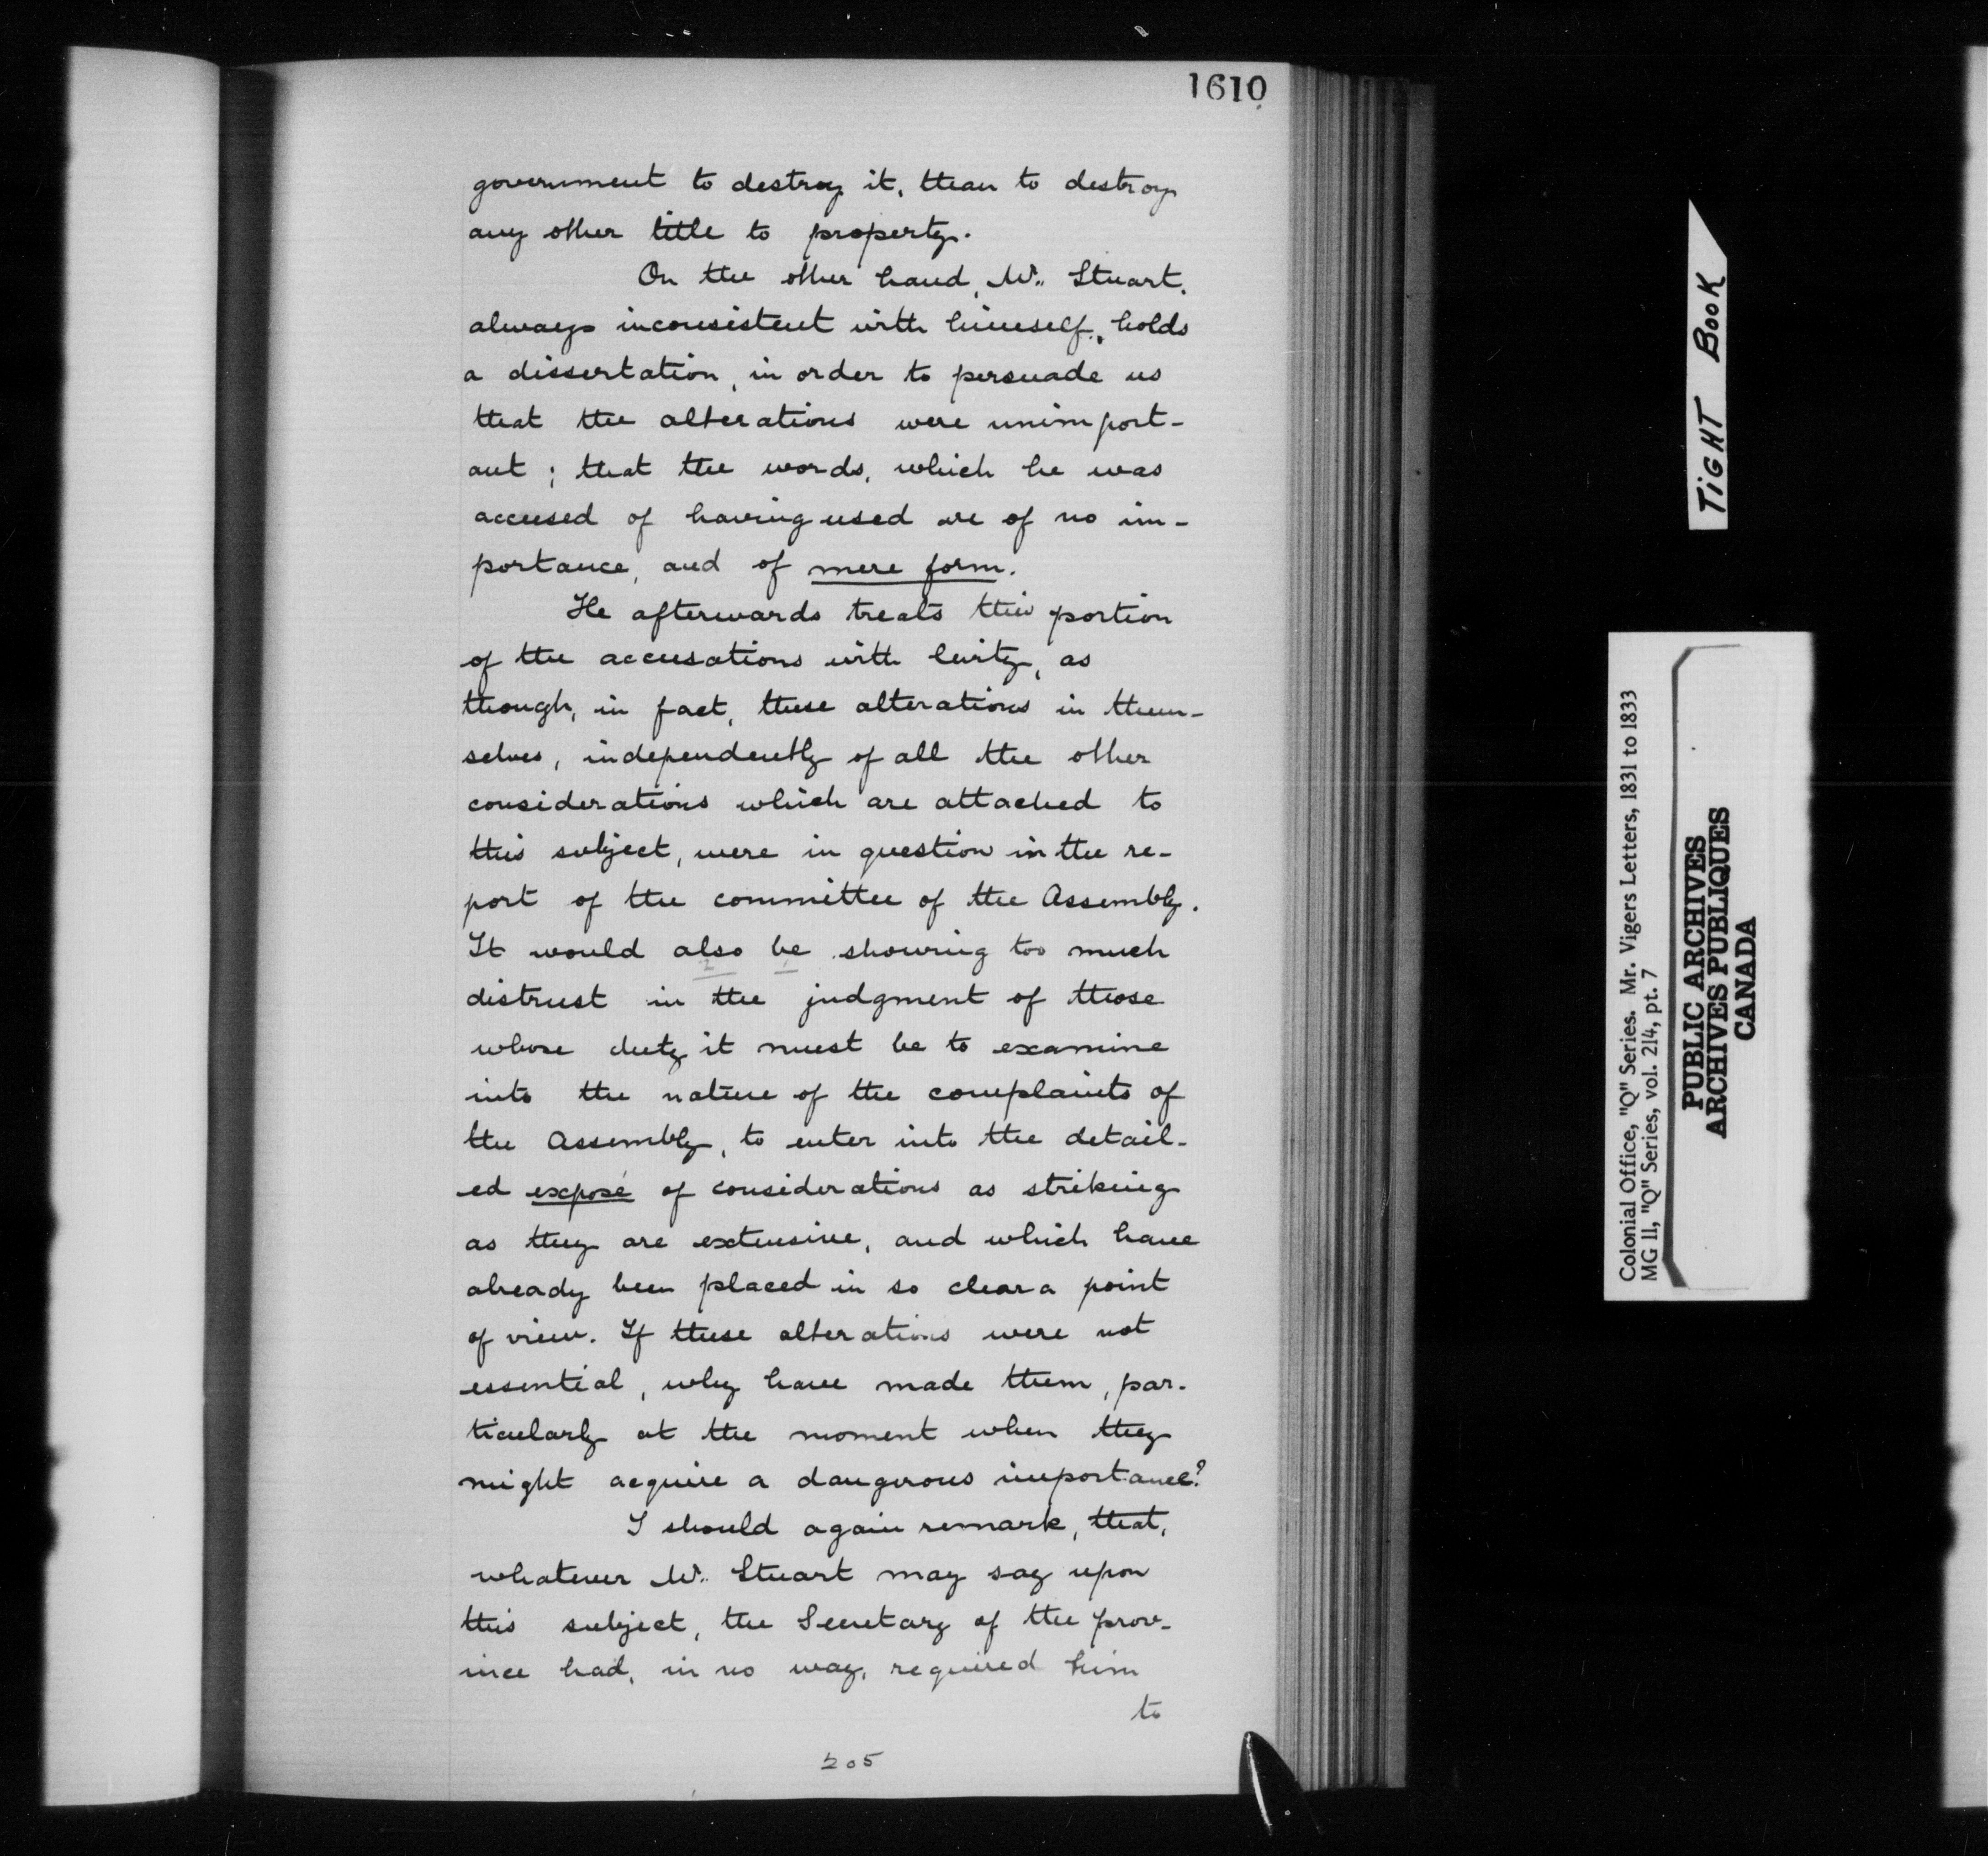 1610
government to destroy it, than to destroy
any other title to property.
On the other hand, Mr. Stuart,
always inconsistent with himself, holds
a dissertation, in order to persuade us
that the alterations were unimport-
ant ; that the words, which he was
accused of having used are of no im-
portance, and of mere form.
He afterwards treats this portion
of the accusations with levity, as
though, in fact, these alterations in them-
selves, independently of all the other
considerations which are attached to
this subject, were in question in the re-
port of the committee of the Assembly.
It would also be showing too much
distrust in the judgment of those
whose duty it must be to examine
into the nature of the complaints of
the Assembly, to enter into the detail-
ed exposé of considerations as striking
as they are extensive, and which have
already been placed in so clear a point
of view. If these alterations were not
essential, why have made them, par-
ticularly at the moment when they
might acquire a dangerous importance?
I should again remark, that,
whatever Mr. Stuart may say upon
this subject, the Secretary of the prov-
ince had, in no way, required him
to
205
TIGHT BOOK
Colonial Office, "Q" Series. Mr. Vigers Letters, 1831 to 1833
MG 11, "Q" Series, vol. 214, pt. 7
PUBLIC ARCHIVES
ARCHIVES PUBLIQUES
CANADA